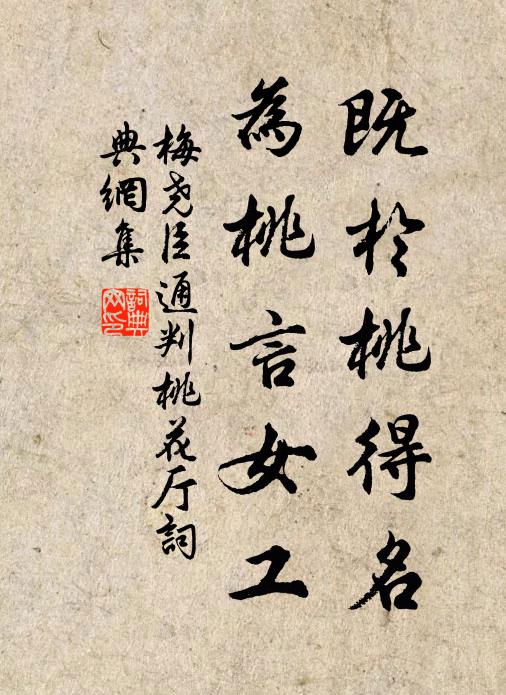 既於桃得名
為桃言女工
梅尧臣通判桃花厅詞
典網集
詞典
网印